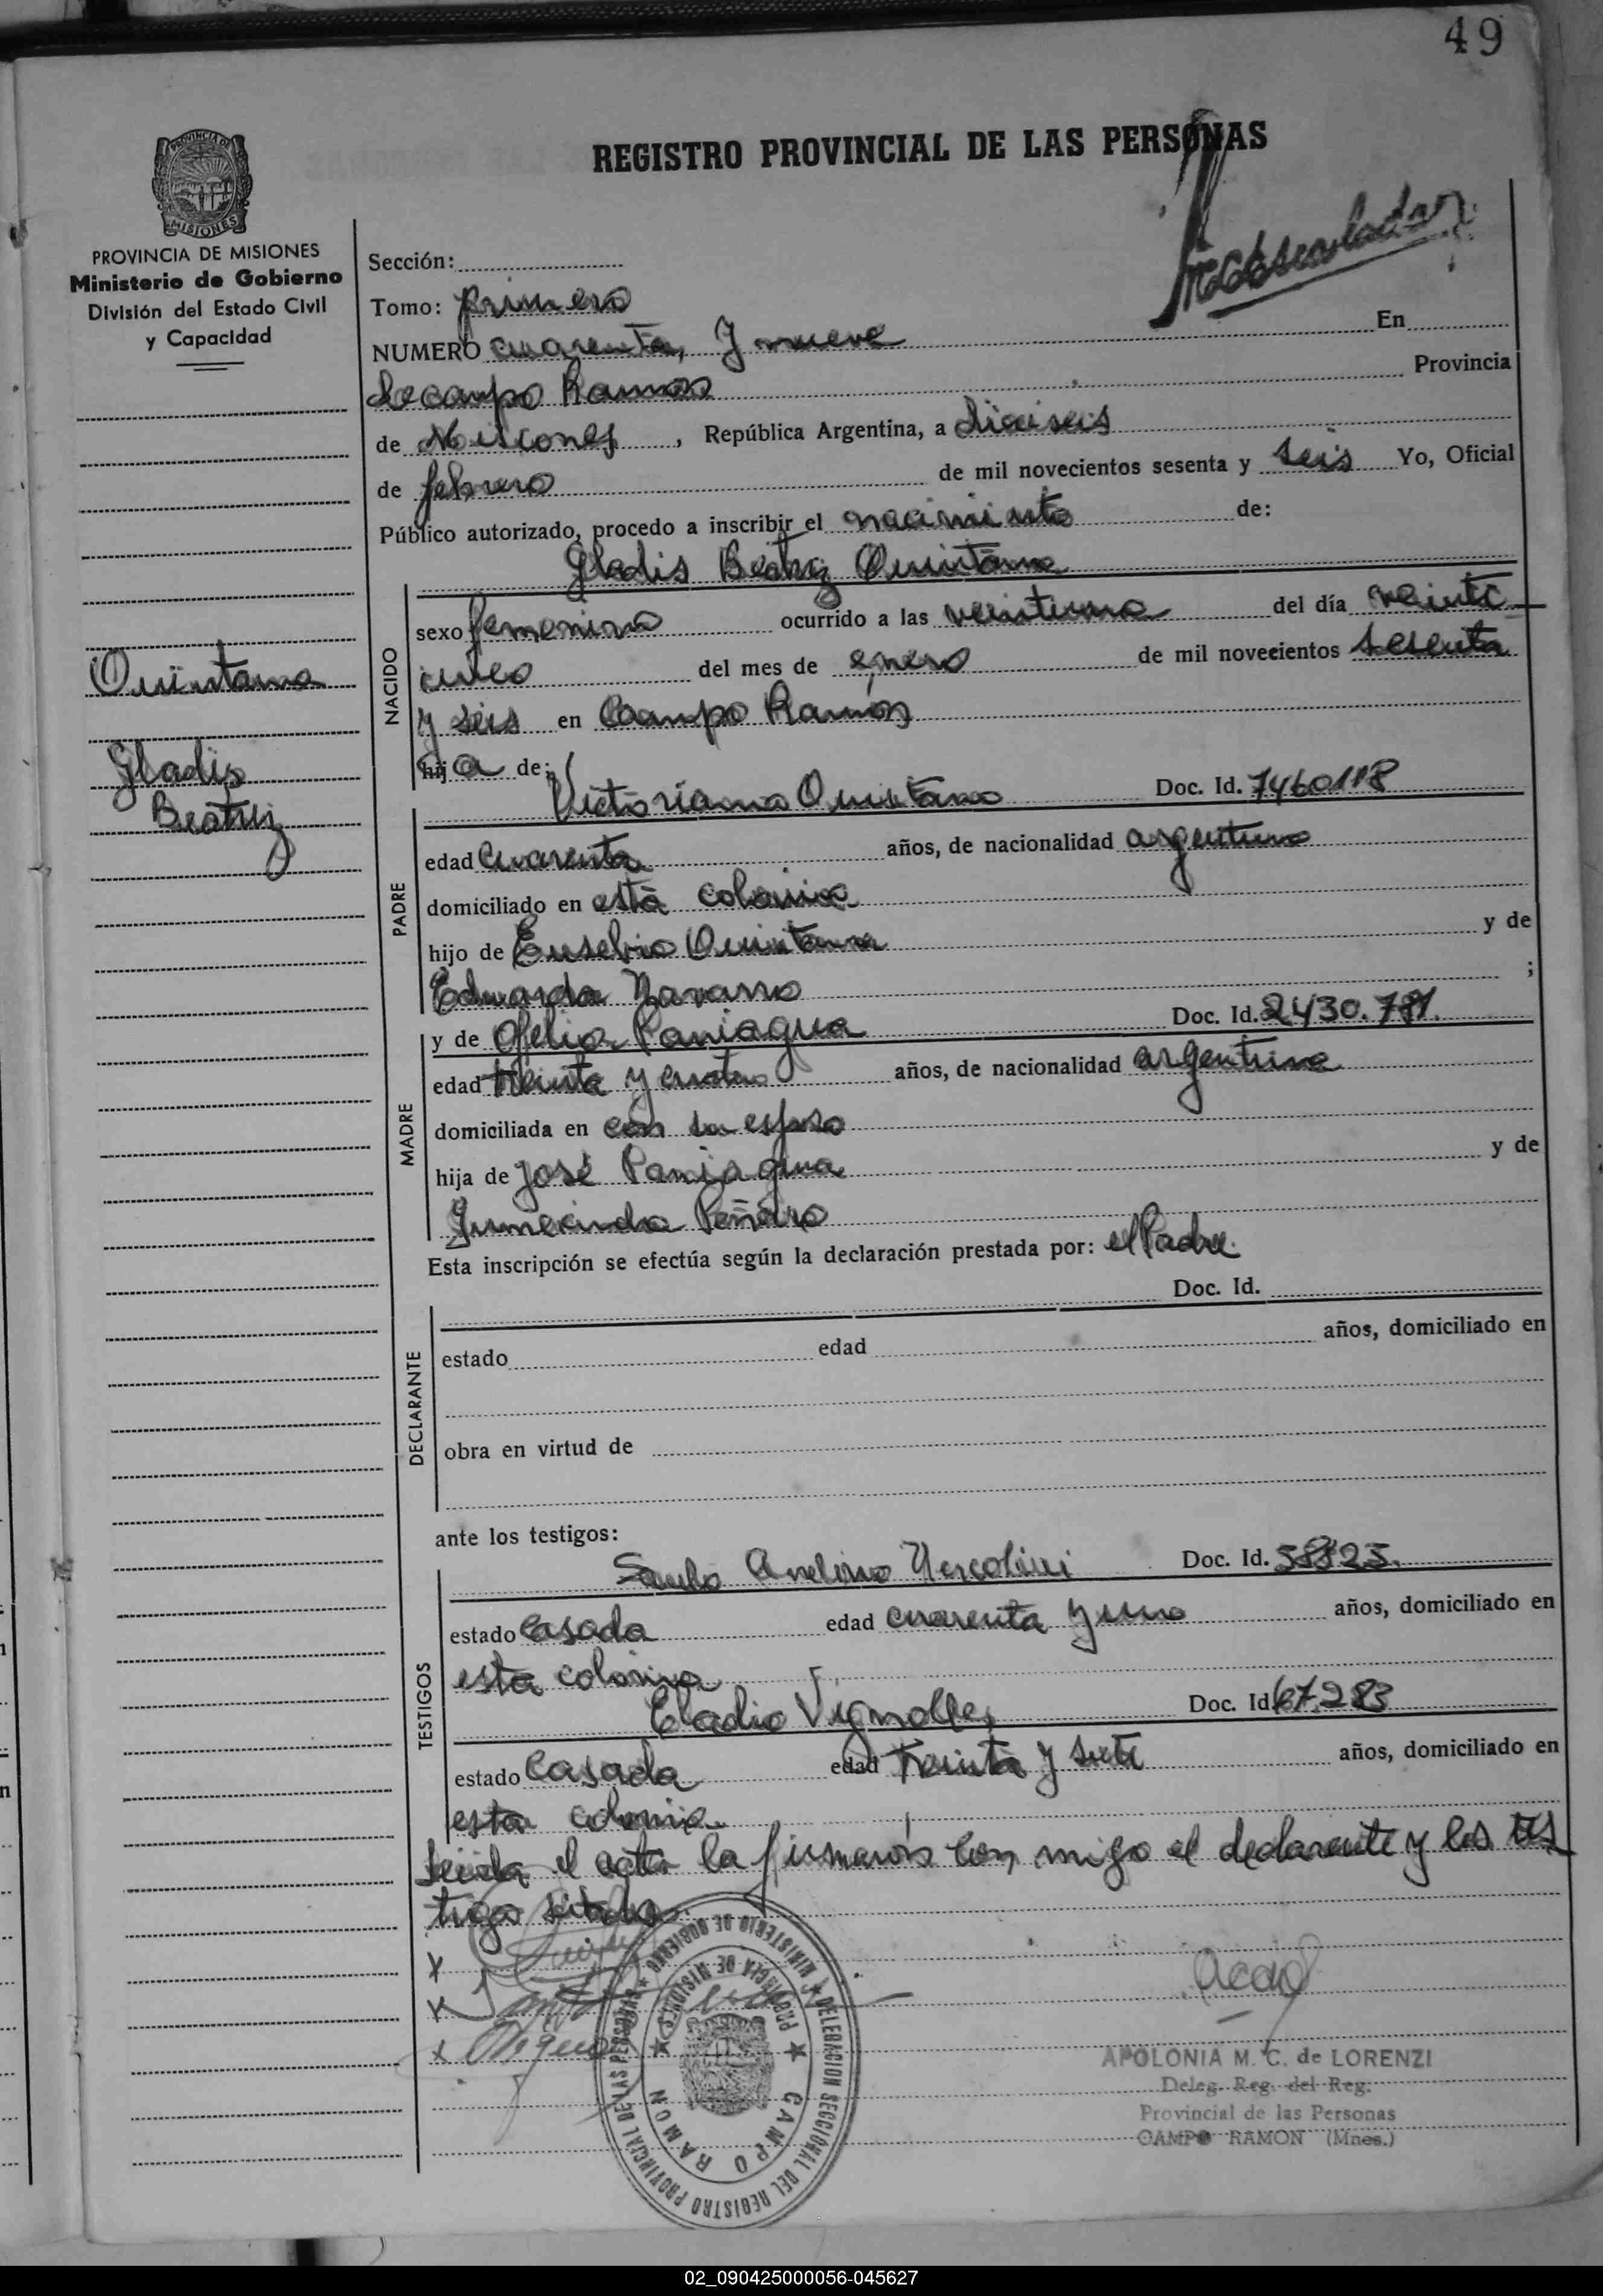 49
REGISTRO PROVINCIAL DE LAS PERSONAS
PROVINCIA DE
MISIONES
PROVINCIA DE MISIONES
Ministerio de Gobierno
División del Estado Civil
y Capacidad
Quintana
Gladis
Beatriz
Sección:
Tomo: primero
NUMERO cuarenta, y nueve En
Campo Ramon Provincia
de Misiones, República Argentina, a dieciseis
de febrero de mil novecientos sesenta y seis Yo, Oficial
Público autorizado, procedo a inscribir el nacimiento de:
Gladis Beatriz Quintana
NACIDO
sexo femenino ocurrido a las veintiuna del día veinte
cinco del mes de enero de mil novecientos sesenta
y seis en Campo Ramón
hija de:
Victoriano Quintana Doc. Id. 7460118
PADRE
edad cuarenta años, de nacionalidad argentino
domiciliado en está colonia
hijo de Eusebio Quintana y de
Eduarda Navarro ;
y de Ofelia Paniagua Doc. Id. 2430.781.
MADRE
edad treinta y cuatro años, de nacionalidad argentina
domiciliada en con su esposo
hija de José Paniagua y de
Gumercinda
Esta inscripción se efectúa según la declaración prestada por: el Padre.
Doc. Id.
DECLARANTE
estado edad años, domiciliado en
obra en virtud de
ante los testigos:
Doc. Id. 58825.
TESTIGOS
estado casado edad cuarenta y uno años, domiciliado en
esta colonia
Eladio Vignolles Doc. Id. 67.283
estado casado edad treinta y siete años, domiciliado en
esta colonia
Leida el acta la firmarós con migo el declarente y los tes
tigo sitados
DELEGACION SECCIONAL DEL REGISTRO PROVINCIAL DE LAS PERSONAS
MINISTERIO DE GOBIERNO
PROVINCIA DE MISIONES
CAMPO RAMON
APOLONIA M. C. de LORENZI
Deleg. Reg. del Reg.
Provincial de las Personas
CAMPO RAMON (Mnes.)
02_090425000056-045627